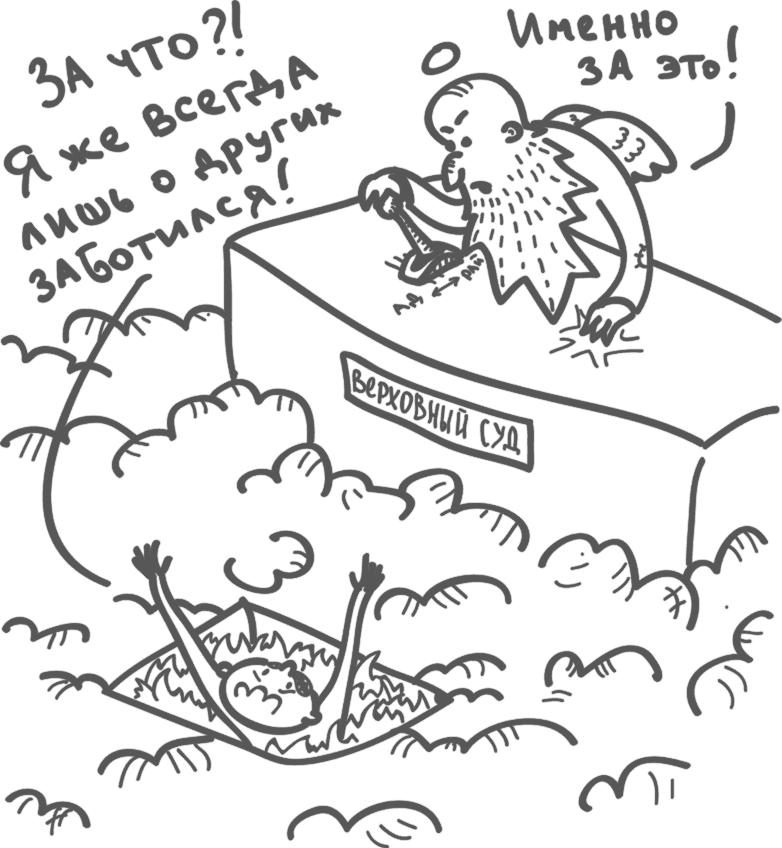 За что?!
Я же всегда
лишь о других
заботился!
Именно
за это!
ад ↔ рай
Верховный суд